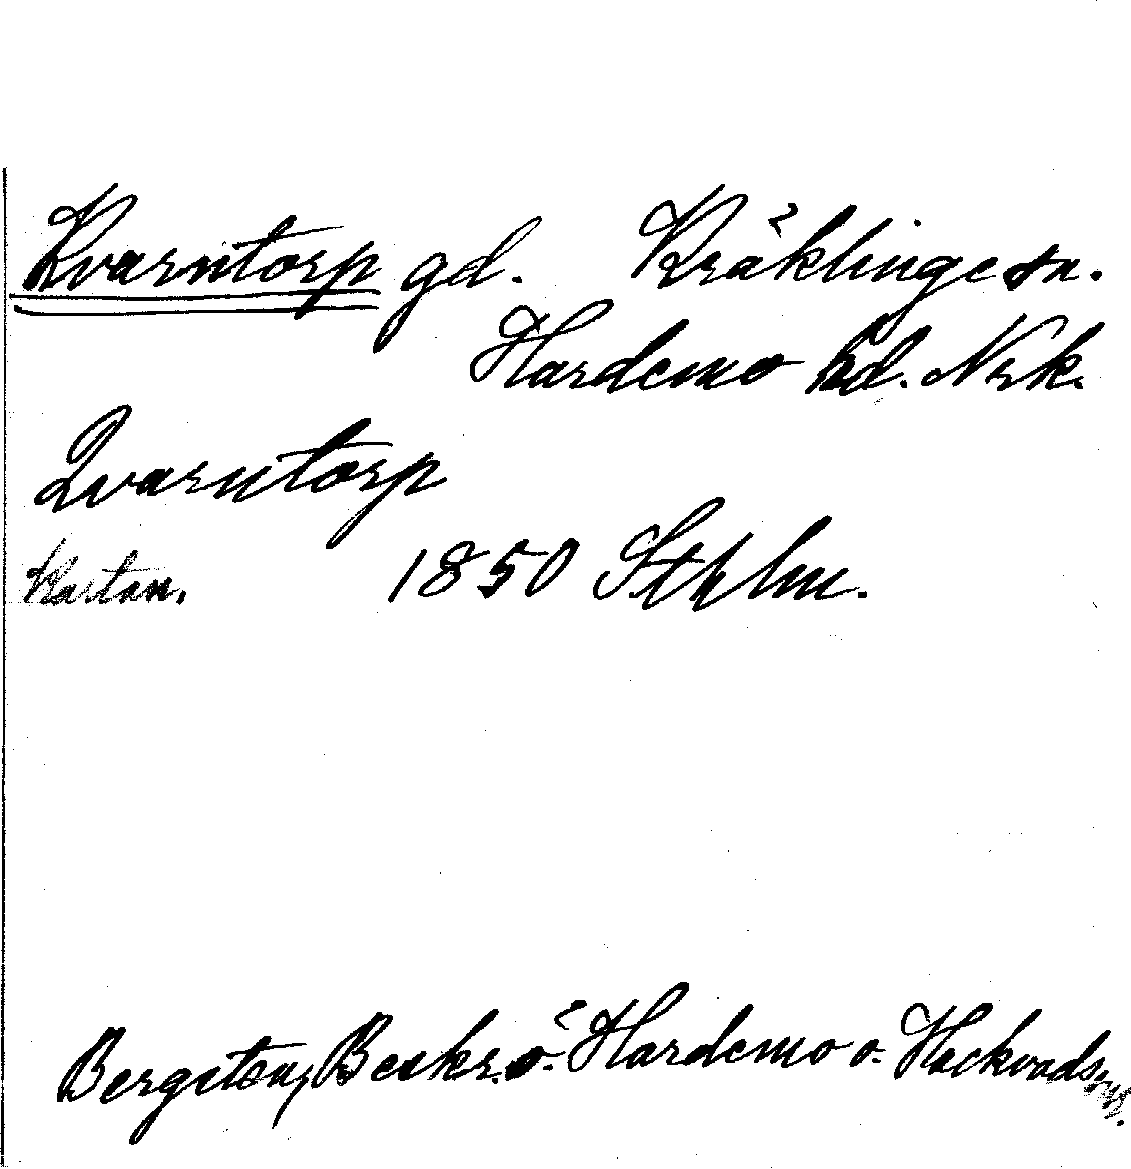 Kvarntorp gd. Kräklinge sn.
Hardemo hd. Nrk.
Qvarntorp
Kartan. 1850 Sthlm.
Bergsten, Beskr. ö. Hardemo o. Hackvads